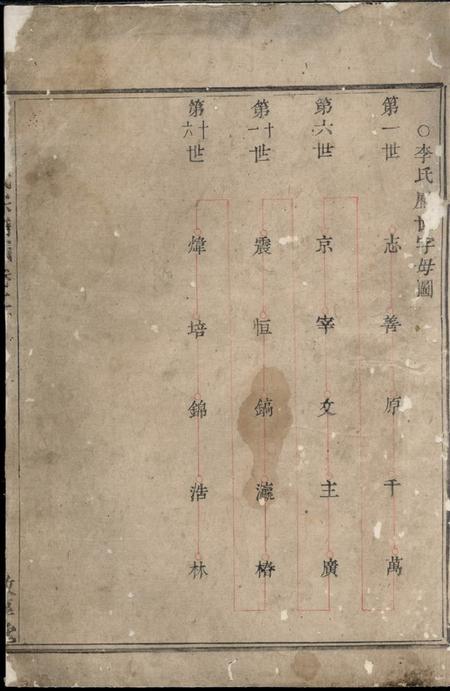 ○李氏歷世字母圖
第一世
志善原千萬
第六世
京宰文主廣
第十一世
震恒鎬瀍椿
第十六世
煒培錦浩林